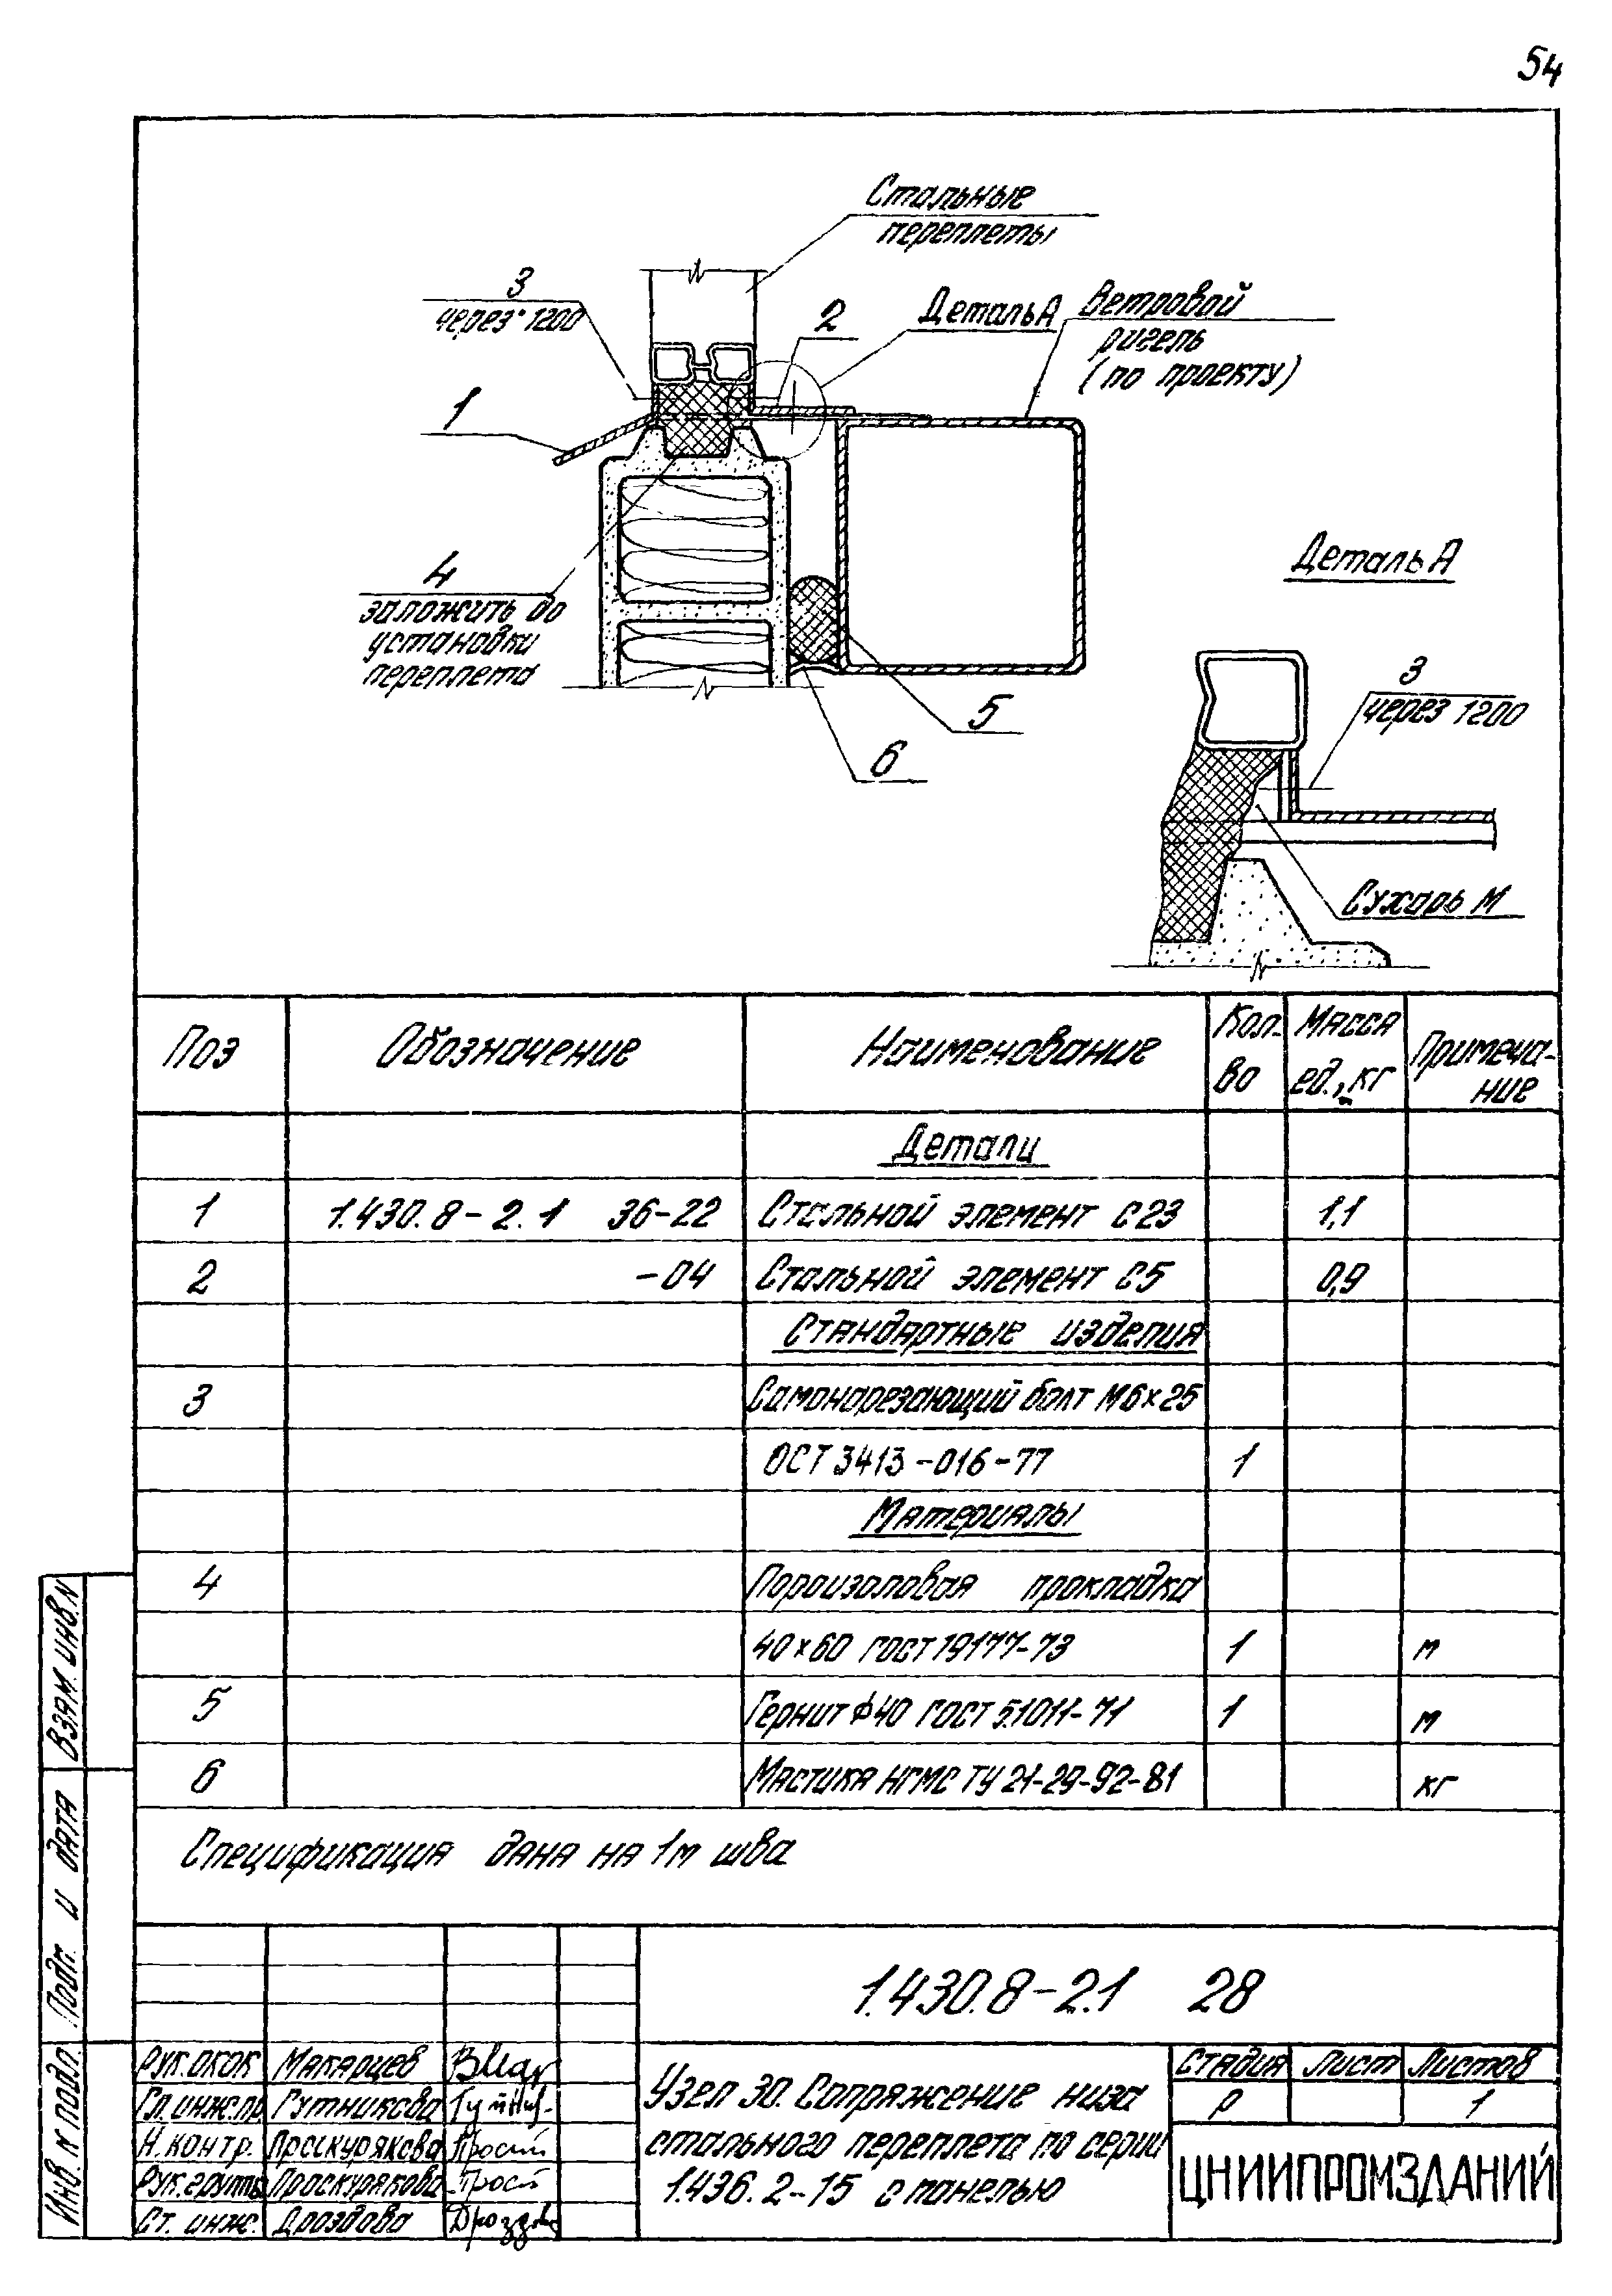 54
Стальные
переплеты
3
через 1200
2
Деталь А
Ветровой
ригель
(по проекту)
1
4
заложить до
установки
переплета
5
6
Деталь А
3
через 1200
Сухарь М
Поз Обозначение Наименование Кол-во Масса ед., кг Примечание
Детали
1 1.430.8-2.1 36-22 Стальной элемент С23 1,1
2 -04 Стальной элемент С5 0,9
Стандартные изделия
3 Самонарезающий болт М6х25
ОСТ 3413-016-77 1
Материалы
4 Пороизоловая прокладка
40х60 ГОСТ 19177-73 1 м
5 Гернит ф40 ГОСТ 5.1011-71 1 м
6 Мастика НГМС ТУ 21-29-92-81 кг
Спецификация дана на 1м шва
Взам. инв. N
Подп. и дата
Инв. N подл.
1.430.8-2.1 28
Рук. окок Макарцев
Гл. инж. пр Гутникова
Н. контр. Проскурякова
Рук. группы Проскурякова
Ст. инж. Дроздова
Узел 30. Сопряжение низа
стального переплета по серии
1.436.2-15 с панелью
Стадия Лист Листов
Р 1
ЦНИИПРОМЗДАНИЙ